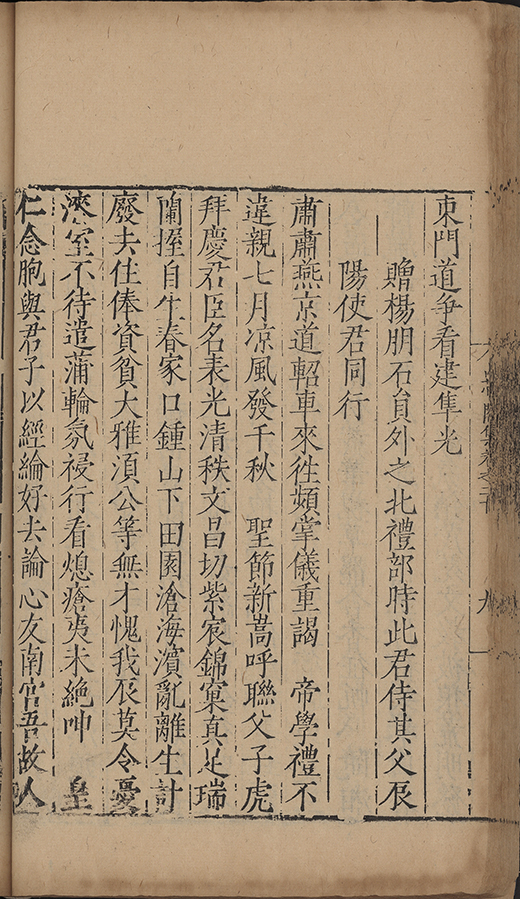 東門道爭看建隼光
贈楊朋石員外之北禮部時此君侍其父辰
陽使君同行
肅肅燕京道軺車來往頻掌儀重謁　帝學禮不
違親七月凉風發千秋　聖節新嵩呼聯父子虎
拜慶君臣名表光清秩文昌切紫宸錦窠真足瑞
蘭握自生春家口鍾山下田園滄海濱亂離生計
廢去住俸資貧大雅須公等無才愧我辰莫令憂
漆室不待遣蒲輪氛祲行看熄瘡夷未絕呻　皇
仁念胞與君子以經綸好去論心友南宮吾故人
九